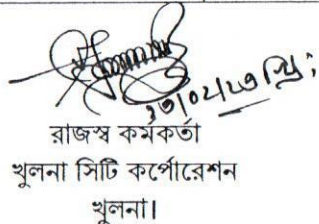 ২৩/০২/২৩ খ্রি:
রাজস্ব কর্মকর্তা
খুলনা সিটি কর্পোরেশন
খুলনা।